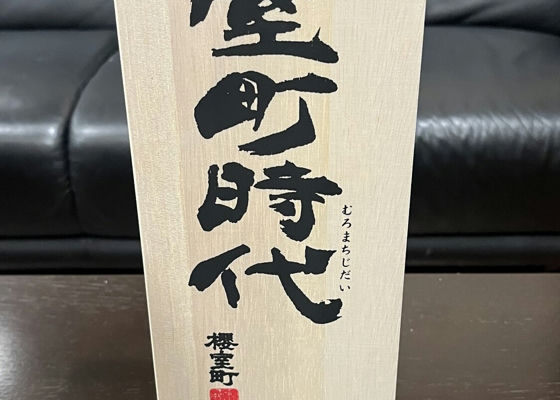 室町時代
むろまちじだい
櫻室町